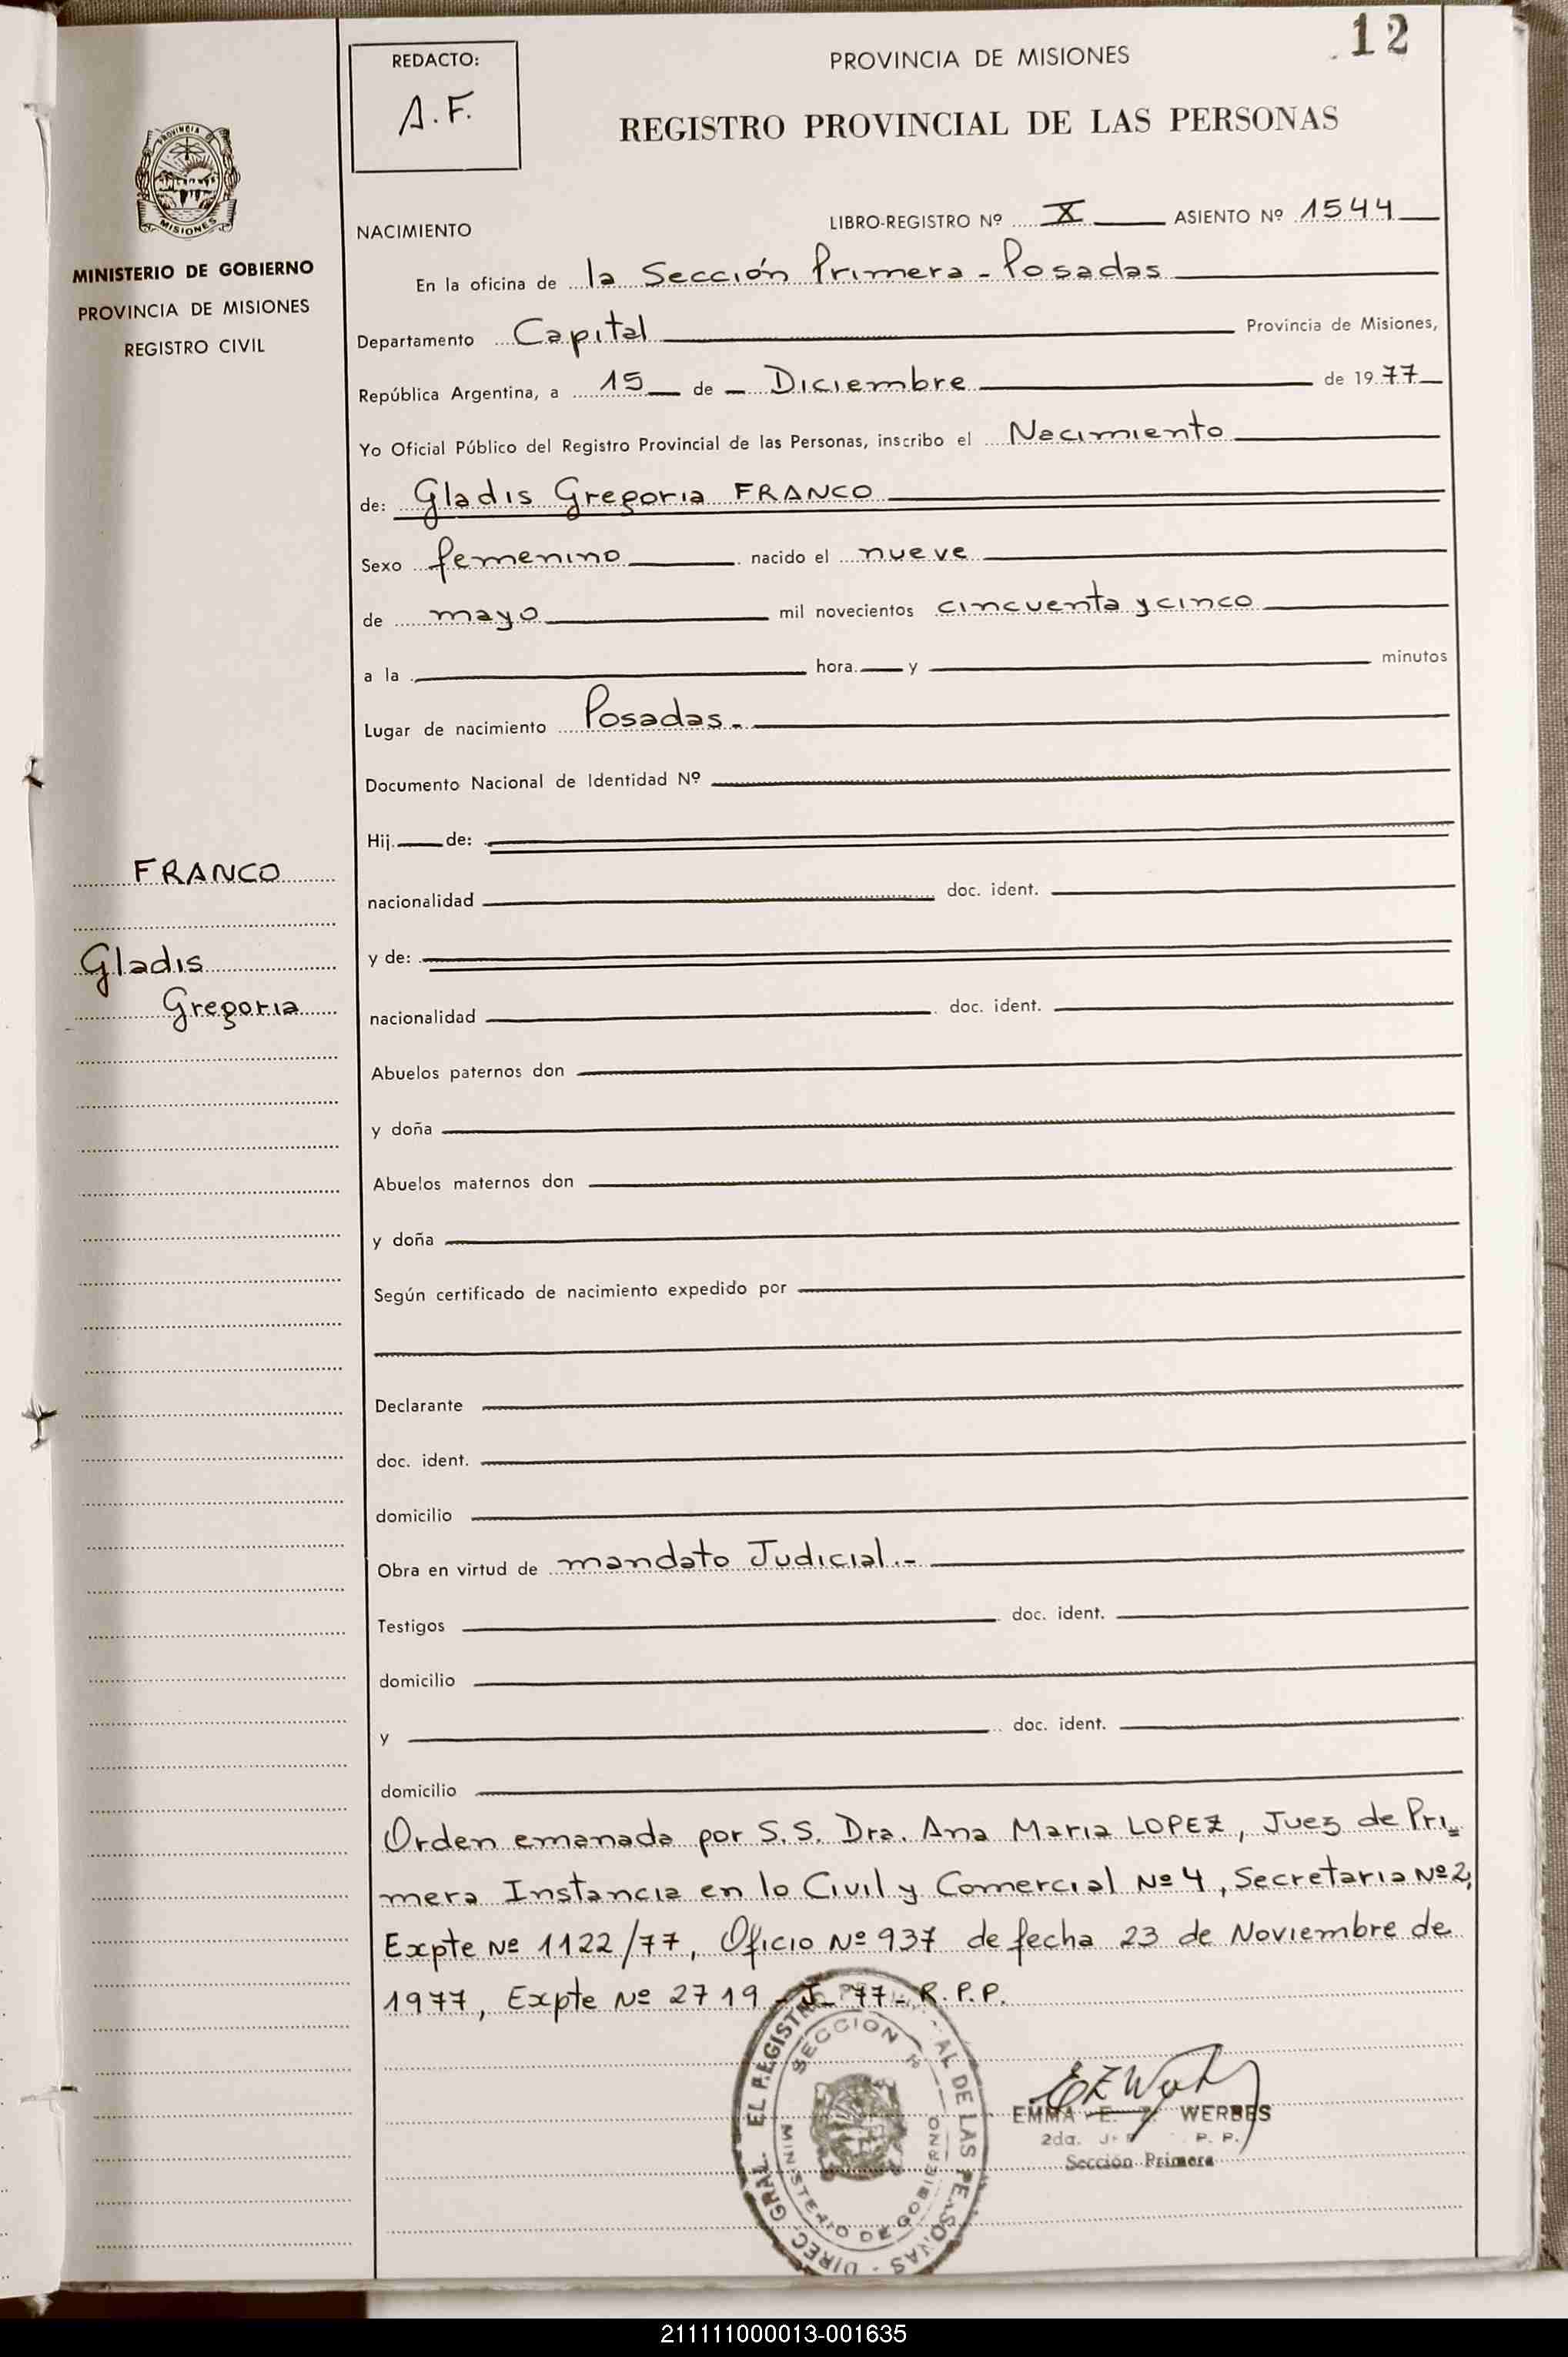 12
REDACTO:
A.F.
PROVINCIA DE MISIONES
REGISTRO PROVINCIAL DE LAS PERSONAS
PROVINCIA DE
MISIONES
MINISTERIO DE GOBIERNO
PROVINCIA DE MISIONES
REGISTRO CIVIL
NACIMIENTO LIBRO-REGISTRO Nº X ASIENTO Nº 1544
En la oficina de la Sección Primera - Posadas
Departamento Capital Provincia de Misiones,
República Argentina, a 15 de Diciembre de 1977
Yo Oficial Público del Registro Provincial de las Personas, inscribo el Nacimiento
de: Gladis Gregoria FRANCO
Sexo femenino nacido el nueve
de mayo mil novecientos cincuenta y cinco
a la hora y minutos
Lugar de nacimiento Posadas.-
Documento Nacional de Identidad Nº
Hij de:
FRANCO
nacionalidad doc. ident.
Gladis
Gregoria
y de:
nacionalidad doc. ident.
Abuelos paternos don
y doña
Abuelos maternos don
y doña
Según certificado de nacimiento expedido por
Declarante
doc. ident.
domicilio
Obra en virtud de mandato Judicial.-
Testigos doc. ident.
domicilio
y doc. ident.
domicilio
Orden emanada por S.S. Dra. Ana Maria LOPEZ, Juez de Pri=
mera Instancia en lo Civil y Comercial Nº 4, Secretaria Nº 2,
Expte Nº 1122/77, Oficio Nº 937 de fecha 23 de Noviembre de
1977, Expte Nº 2719 - J - 77 - R.P.P.
DIREC. GRAL. EL REGISTRO AL DE LAS PERSONAS
SECCION 1º
MINISTERIO DE GOBIERNO
EMMA E. Z. WERBES
2da. P. P.
Sección Primera
211111000013-001635